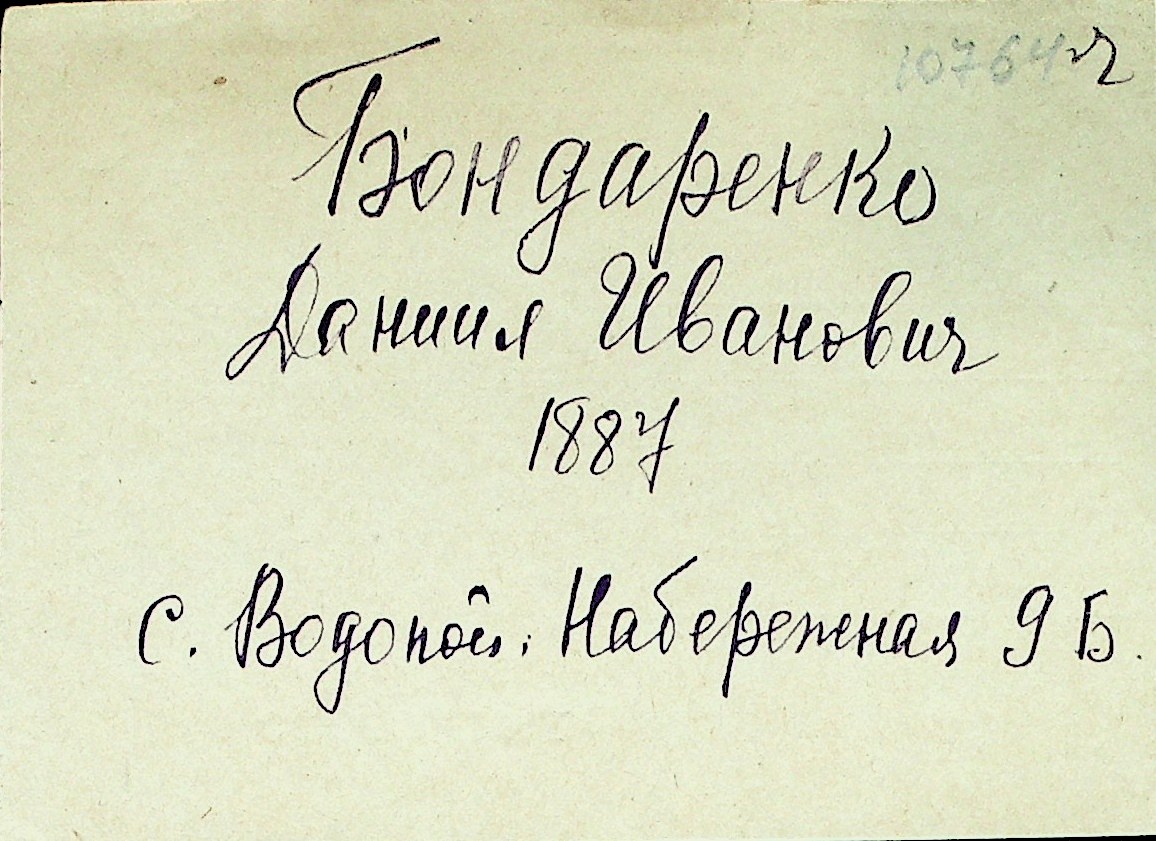 10764 ч
Бондаренко
Даниил Иванович
1887
с. Водопой. Набережная 9 Б.